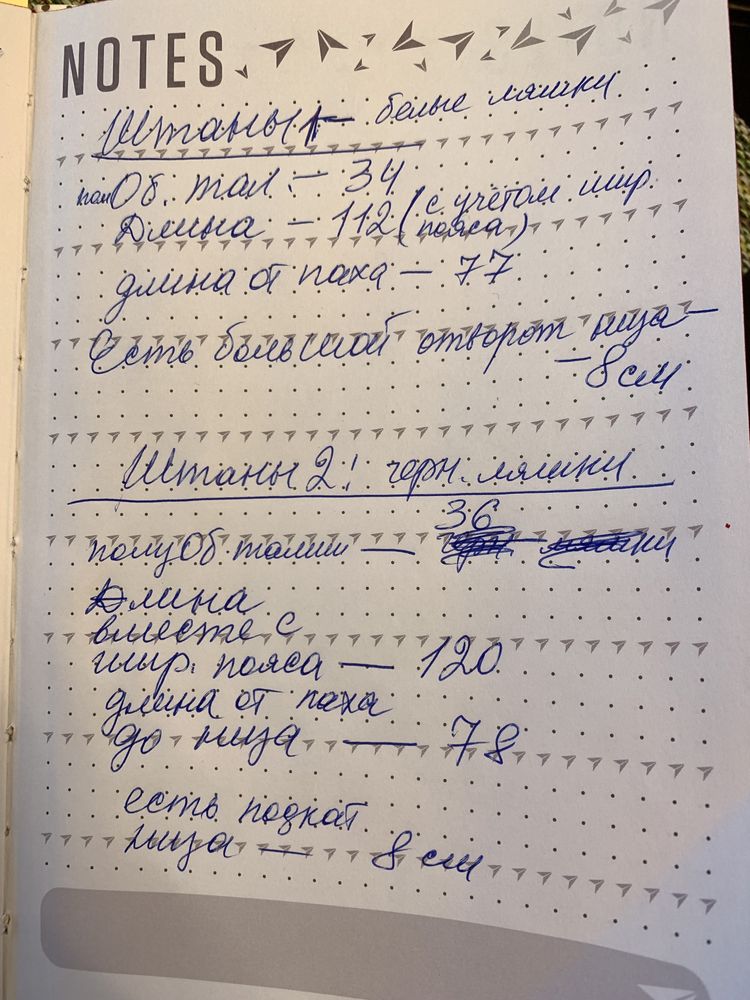 NOTES
Штаны 1 - белые ляшки
пол Об. тал. - 34
Длина - 112 (с учётом шир.
пояса)
длина от паха - 77
Есть большой отворот низа -
- 8 см
Штаны 2: черн. ляшки
36
полуОб талии -
Длина
вместе с
шир. пояса - 120
длина от паха
до низа - 78
есть подкат
низа - 8 см